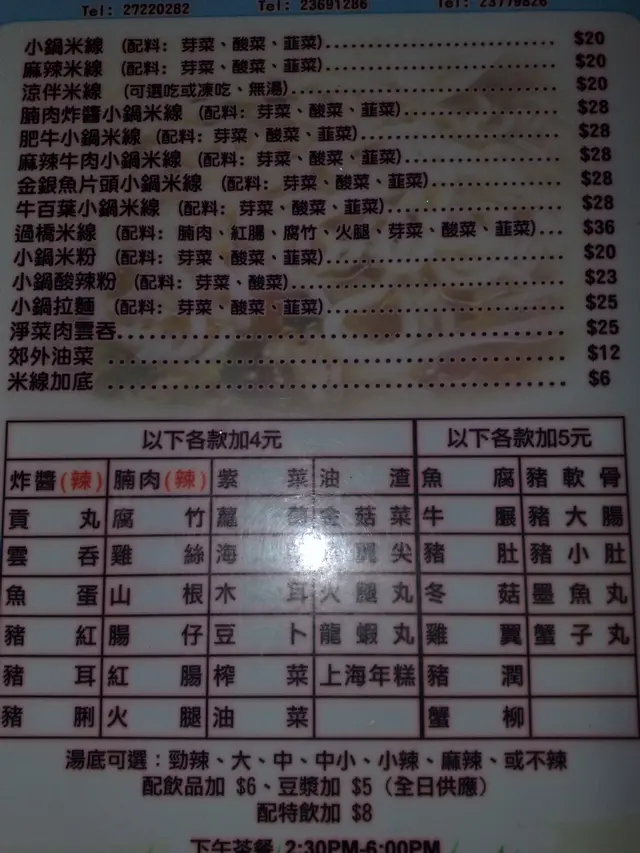 Tel: 27220282 Tel: 23691286 Tel: 23779826
小鍋米線 (配料: 芽菜、酸菜、韮菜)........................ $20
麻辣米線 (配料: 芽菜、酸菜、韮菜)........................ $20
涼伴米線 (可選吃或凍吃、無湯)........................ $20
腩肉炸醬小鍋米線 (配料: 芽菜、酸菜、韮菜)............... $28
肥牛小鍋米線 (配料: 芽菜、酸菜、韮菜).................... $28
麻辣牛肉小鍋米線 (配料: 芽菜、酸菜、韮菜)............... $28
金銀魚片頭小鍋米線 (配料: 芽菜、酸菜、韮菜)............. $28
牛百葉小鍋米線 (配料: 芽菜、酸菜、韮菜)................. $28
過橋米線 (配料: 腩肉、紅腸、腐竹、火腿、芽菜、酸菜、韮菜)... $36
小鍋米粉 (配料: 芽菜、酸菜、韮菜)........................ $20
小鍋酸辣粉 (配料: 芽菜、酸菜)........................ $23
小鍋拉麵 (配料: 芽菜、酸菜、韮菜)........................ $25
淨菜肉雲吞........................................ $25
郊外油菜 ........................................ $12
米線加底 ........................................ $6
以下各款加4元 以下各款加5元
炸醬(辣) 腩肉(辣) 紫菜 油渣 魚腐 豬軟骨
貢丸 腐竹 蘿 金菇菜 牛𦟌 豬大腸
雲吞 雞絲 海 尖 豬肚 豬小肚
魚蛋 山根 木耳 火腿丸 冬菇 墨魚丸
豬紅 腸仔 豆卜 龍蝦丸 雞翼 蟹子丸
豬耳 紅腸 榨菜 上海年糕 豬潤
豬脷 火腿 油菜 蟹柳
湯底可選：勁辣、大、中、中小、小辣、麻辣、或不辣
配飲品加 $6、豆漿加 $5 (全日供應)
配特飲加 $8
下午茶餐 2:30PM-6:00PM